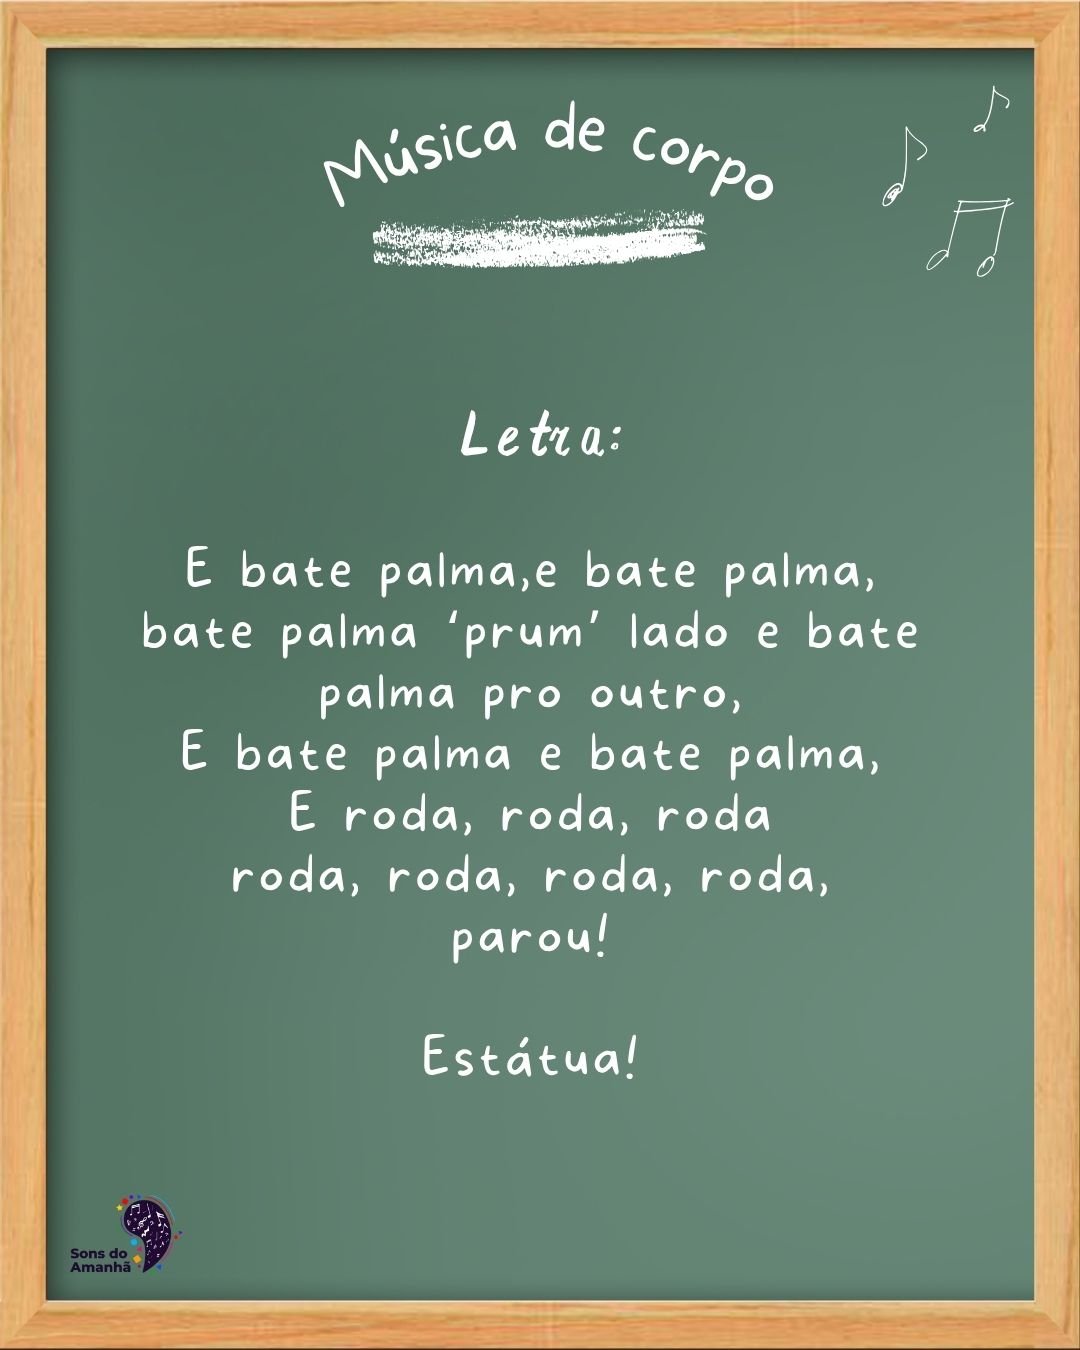 Música de corpo
Letra:
E bate palma,e bate palma,
bate palma ‘prum’ lado e bate
palma pro outro,
E bate palma e bate palma,
E roda, roda, roda
roda, roda, roda, roda,
parou!
Estátua!
Sons do
Amanhã